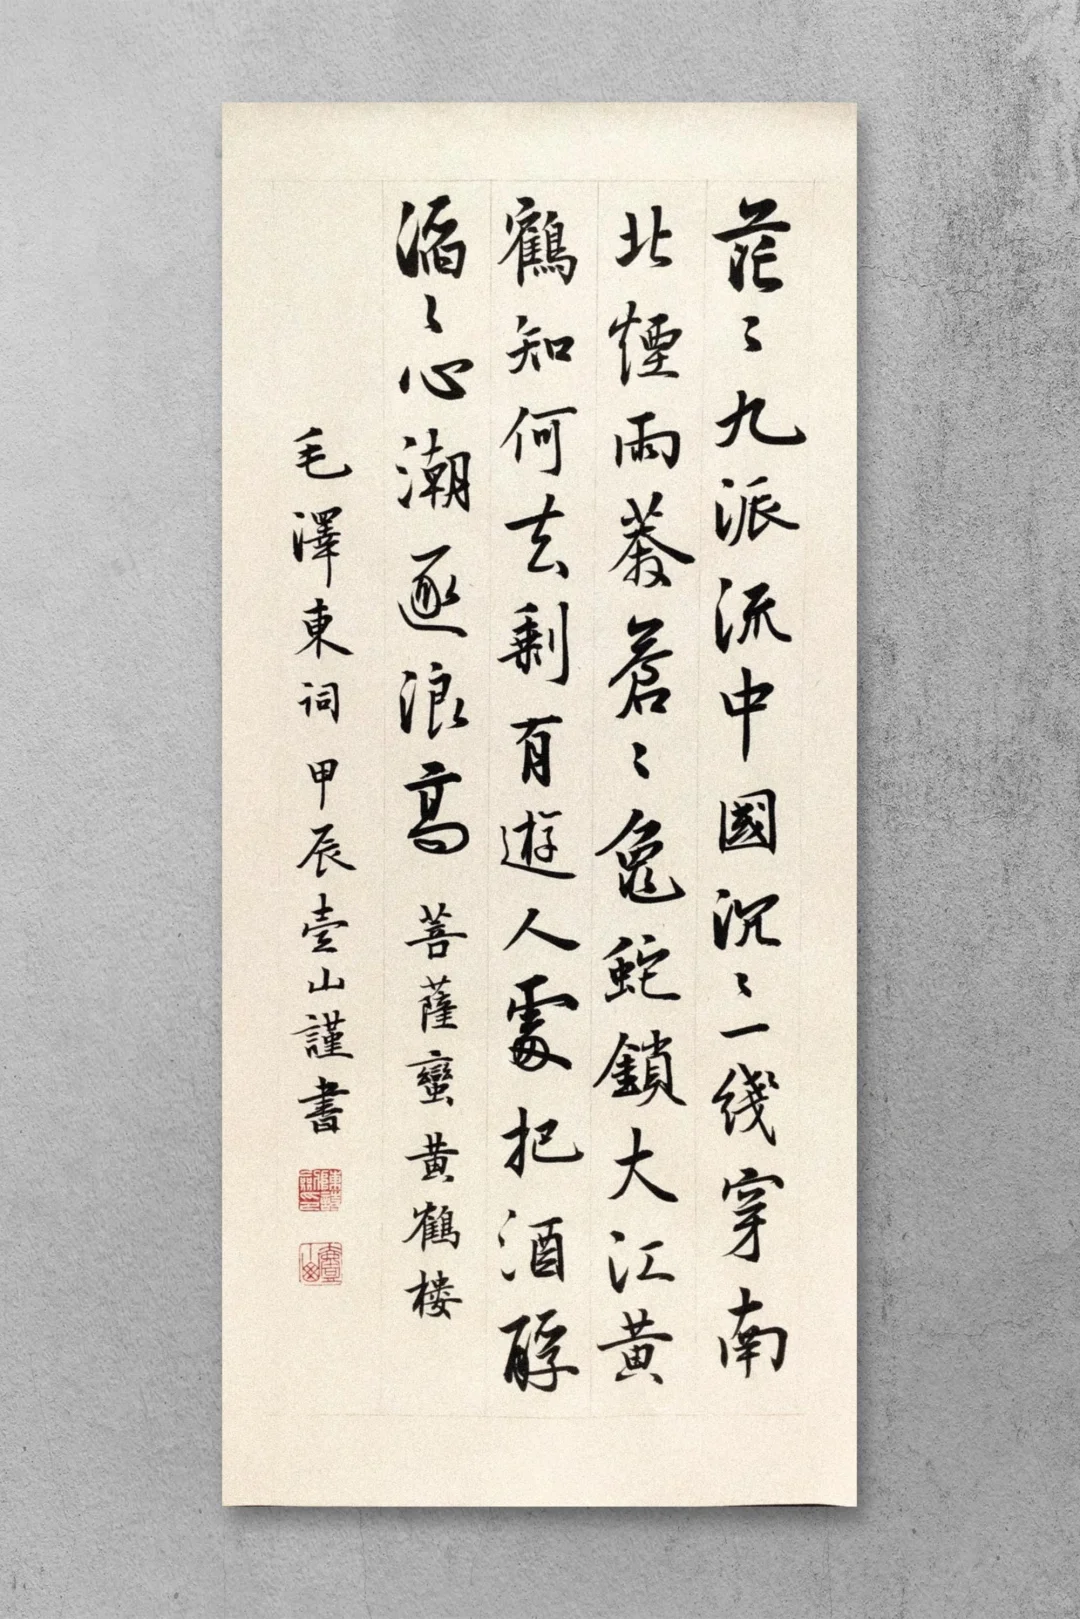 茫〻九派流中國沉〻一綫穿南
北煙雨莽蒼〻龜蛇鎖大江黃
鶴知何去剩有遊人處把酒酹
滔〻心潮逐浪高 菩薩蠻黃鶴楼
毛澤東詞甲辰壹山謹書